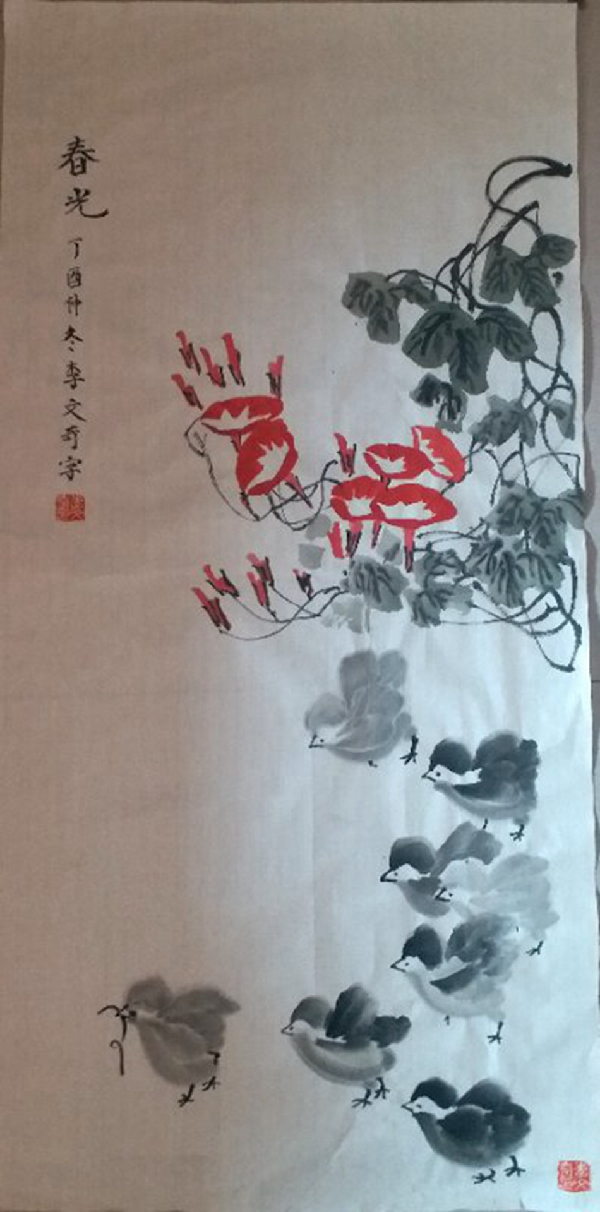 春光
丁酉仲冬李文奇字